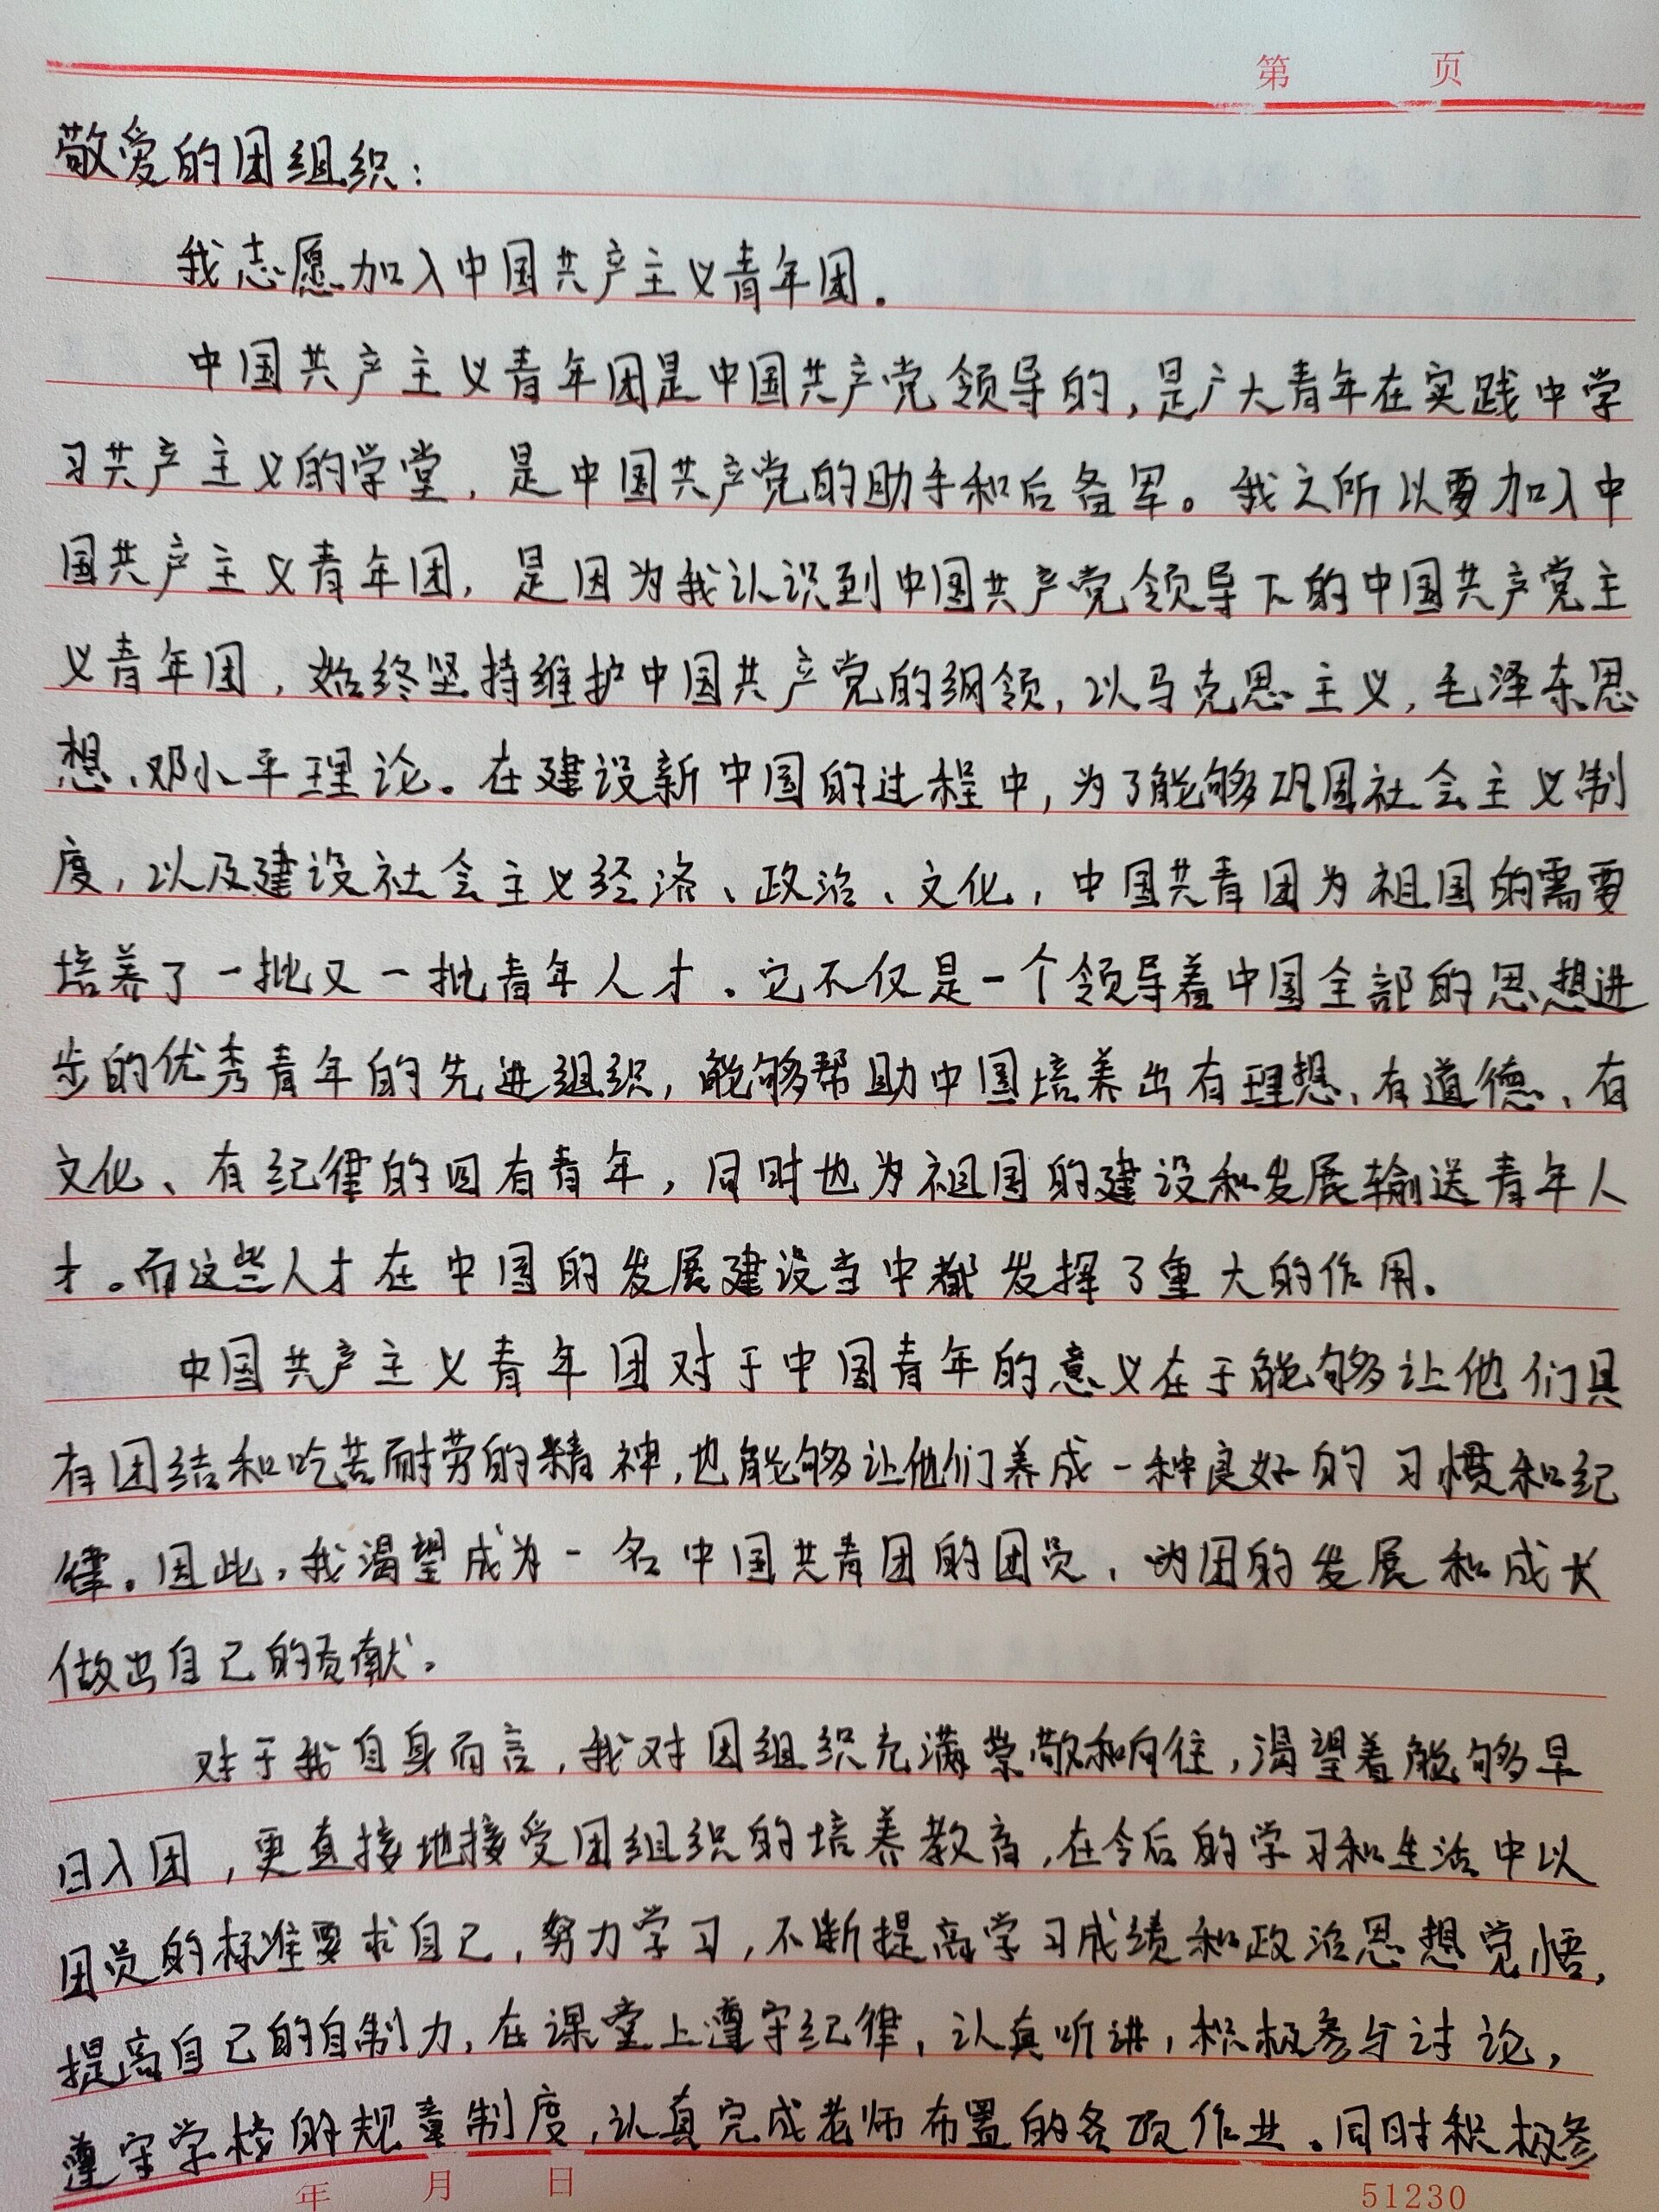 第 页
敬爱的团组织：
我志愿加入中国共产主义青年团.
中国共产主义青年团是中国共产党领导的,是广大青年在实践中学
习共产主义的学堂,是中国共产党的助手和后备军。我之所以要加入中
国共产主义青年团,是因为我认识到中国共产党领导下的中国共产党主
义青年团,始终坚持维护中国共产党的纲领,以马克思主义,毛泽东思
想、邓小平理论。在建设新中国的过程中,为了能够巩固社会主义制
度,以及建设社会主义经济、政治、文化,中国共青团为祖国的需要
培养了一批又一批青年人才.它不仅是一个领导着中国全部的思想进
步的优秀青年的先进组织,能够帮助中国培养出有理想、有道德、有
文化、有纪律的四有青年,同时也为祖国的建设和发展输送青年人
才。而这些人才在中国的发展建设当中都发挥了重大的作用。
中国共产主义青年团对于中国青年的意义在于能够让他们具
有团结和吃苦耐劳的精神,也能够让他们养成一种良好的习惯和纪
律。因此,我渴望成为一名中国共青团的团员,为团的发展和成长
做出自己的贡献。
对于我自身而言,我对团组织充满崇敬和向往,渴望着能够早
日入团,更直接地接受团组织的培养教育,在今后的学习和生活中以
团员的标准要求自己,努力学习,不断提高学习成绩和政治思想觉悟,
提高自己的自制力,在课堂上遵守纪律,认真听讲,积极参与讨论,
遵守学校的规章制度,认真完成老师布置的各项作业。同时积极参
年 月 日 51230